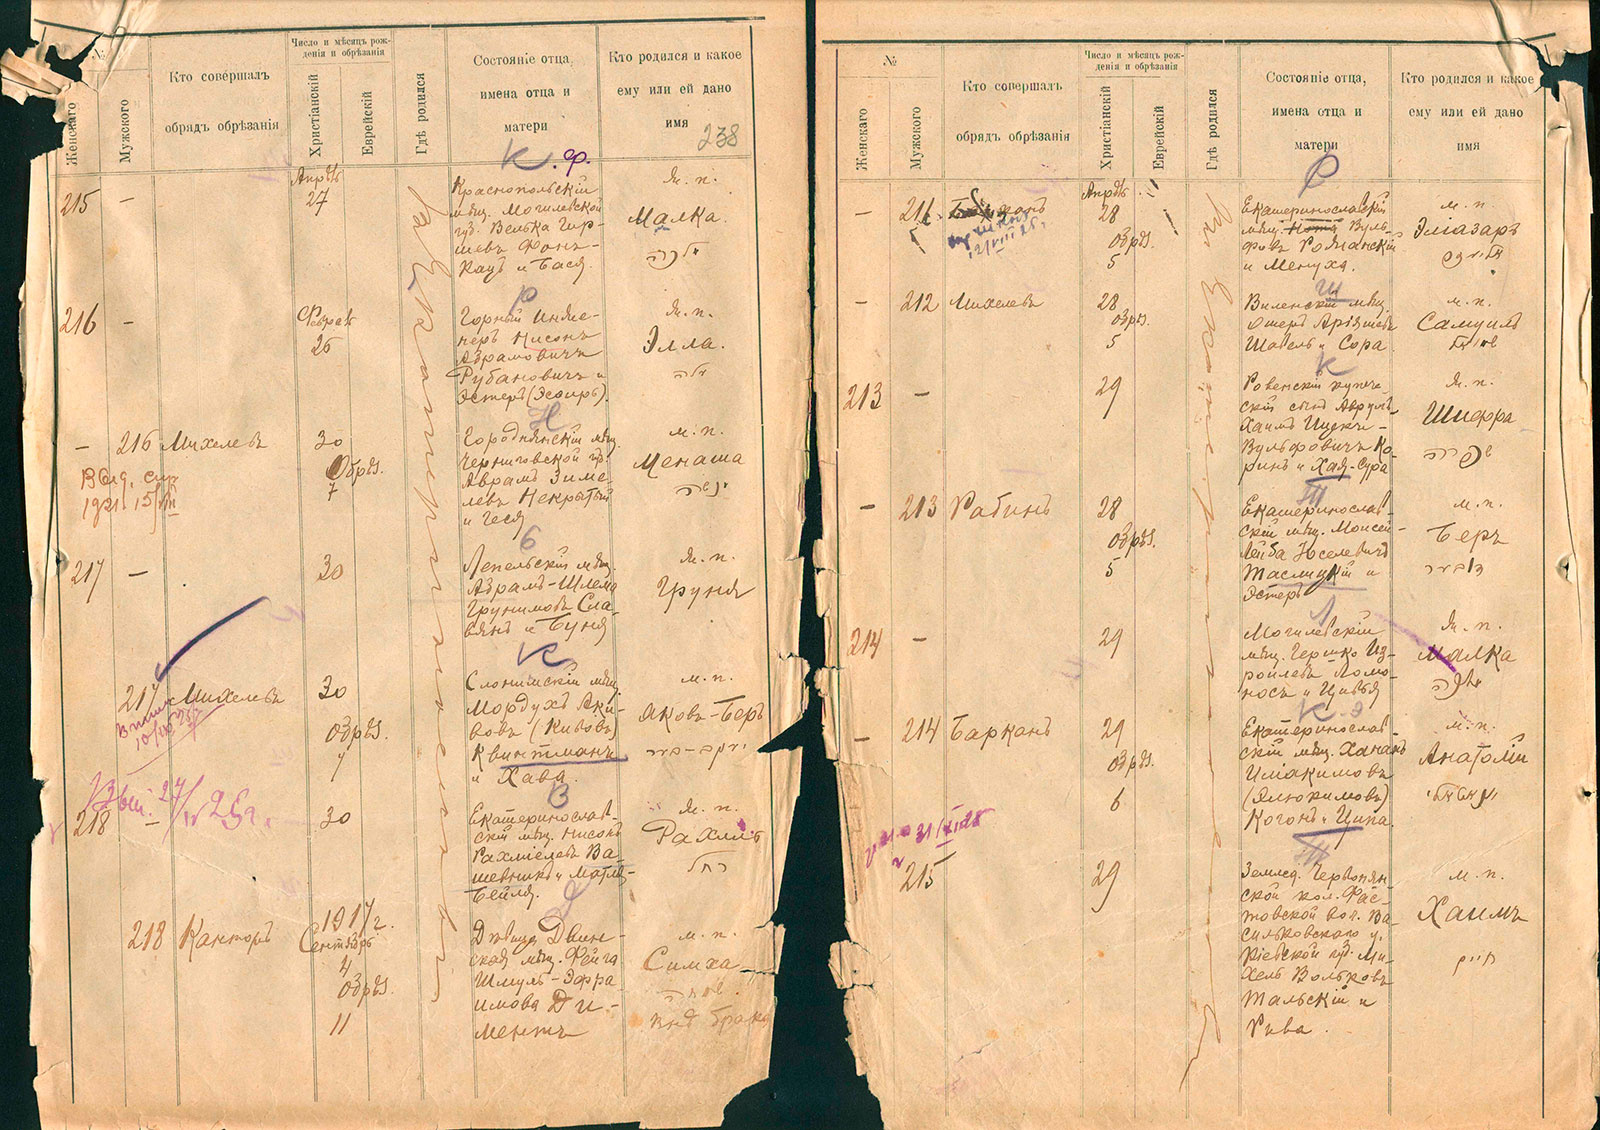 №
Женскаго
Мужского
Кто совершалъ
обрядъ обрѣзанія
Число и мѣсяцъ рож-
денія и обрѣзанія
Христіанскій
Еврейскій
Гдѣ родился
Состояніе отца,
имена отца и
матери
Кто родился и какое
ему или ей дано
имя
238
К. Ф.
215
—
Апрѣль
27
Краснопольскій
мѣщ. Могилевской
губ. Велька Гир-
шевъ Фонъ-
Кацъ и Бася.
Ж. п.
Малка.
מלכה
Р
216
—
Феврал
26
Горный Инже-
неръ Нисонъ
Абрамовичъ
Рубановичъ и
Эстеръ (Эсфирь).
Ж. п.
Элла.
עלה
Н
—
216
Михелевъ
30
Обрѣз.
7
Городнянскій мѣщ.
Черниговской губ.
Абрамъ Зиме-
левъ Некратый
и Геся
м. п.
Менаша
מנשה
1921 15/VIII
Б
217
—
30
Лепельскій мѣщ.
Абрамъ-Шлема
Грунимовъ Сла-
винъ и Буня
Ж. п.
Груня
К
217
Михелевъ
30
Обрѣз.
7
Слонимскій мѣщ.
Мордухъ Аки-
вовъ (Кивовъ)
Квинтманъ
и Хава.
м. п.
Яковъ-Беръ
יעקב-בער
27/IV 25г.
В
218
—
30
Екатеринослав-
скій мѣщ. Нисонъ
Рахміелевъ Ва-
шевникъ и Матля-
Бейля.
Ж. п.
Рахиль
רחל
Д
218
Канторъ
1917 г.
Сентябрь
4
Обрѣз.
11
Дѣвица Двин-
ская мѣщ. Фейга
Шмуль-Эфра-
имова Ди-
ментъ
м. п.
Симха
שמחה
внѣ брака
Въ Екатеринославѣ
№
Женскаго
Мужского
Кто совершалъ
обрядъ обрѣзанія
Число и мѣсяцъ рож-
денія и обрѣзанія
Христіанскій
Еврейскій
Гдѣ родился
Состояніе отца,
имена отца и
матери
Кто родился и какое
ему или ей дано
имя
Р
—
211
12/VIII 25.
Апрѣль
28
Обрѣз.
5
Екатеринославскій
мѣщ. Вуль-
фовъ Рожанскій
и Менуха.
м. п.
Эліазаръ
Ш
—
212
Михелевъ
28
Обрѣз.
5
Виленскій мѣщ.
Ошеръ Аріяшевъ
Шабель и Сора.
м. п.
Самуилъ
שמואל
К
213
—
29
Ровенскій купече-
скій сынъ Аврумъ-
Хаимъ Ицекъ-
Вульфовичъ Ко-
ринъ и Хая-Сура
Ж. п.
Шифра
שפרה
Т
—
213
Рабинъ
28
Обрѣз.
5
Екатеринослав-
скій мѣщ. Моисей-
Лейба Іоселевичъ
Таслицкій и
Эстеръ
м. п.
Беръ
Л
214
—
29
Могилевскій
мѣщ. Гершко Из-
роилевъ Ломо-
носъ и Цивья
Ж. п.
Малка
מלכה
К-Э
—
214
Барканъ
29
Обрѣз.
6
Екатеринослав-
скій мѣщ. Хананъ
Иліакимовъ
(Элюкимовъ)
Когонъ и Ципа.
м. п.
Анатолій
אנאטאלי
31/VII 28
Т
215
29
Землед. Червонян-
ской кол. Фас-
товской вол. Ва-
сильковскаго у.
Кіевской губ. Ми-
хель Вольковъ
Тальскій и
Рива.
м. п.
Хаимъ
חיים
Въ Екатеринославѣ